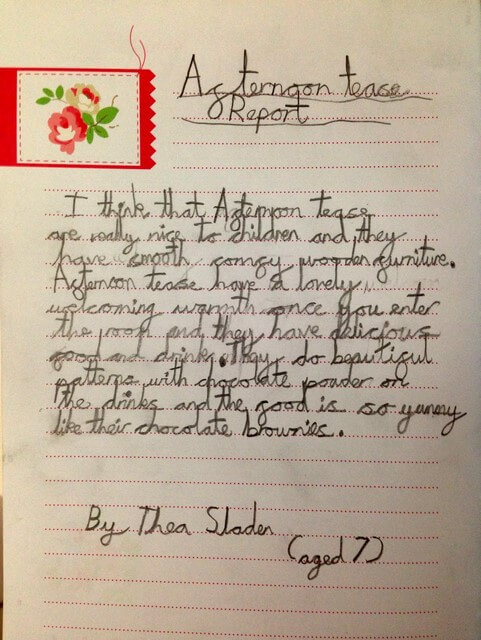 Afternoon tease
Report
I think that Afternoon tease
are really nice to children and they
have smooth comfy wooden furniture.
Afternoon tease have a lovely
welcoming warmth once you enter
the room and they have delicious
food and drinks. They do beautiful
patterns with chocolate powder on
the drinks and the food is so yummy
like their chocolate brownies.
By Thea Sladen
(aged 7)